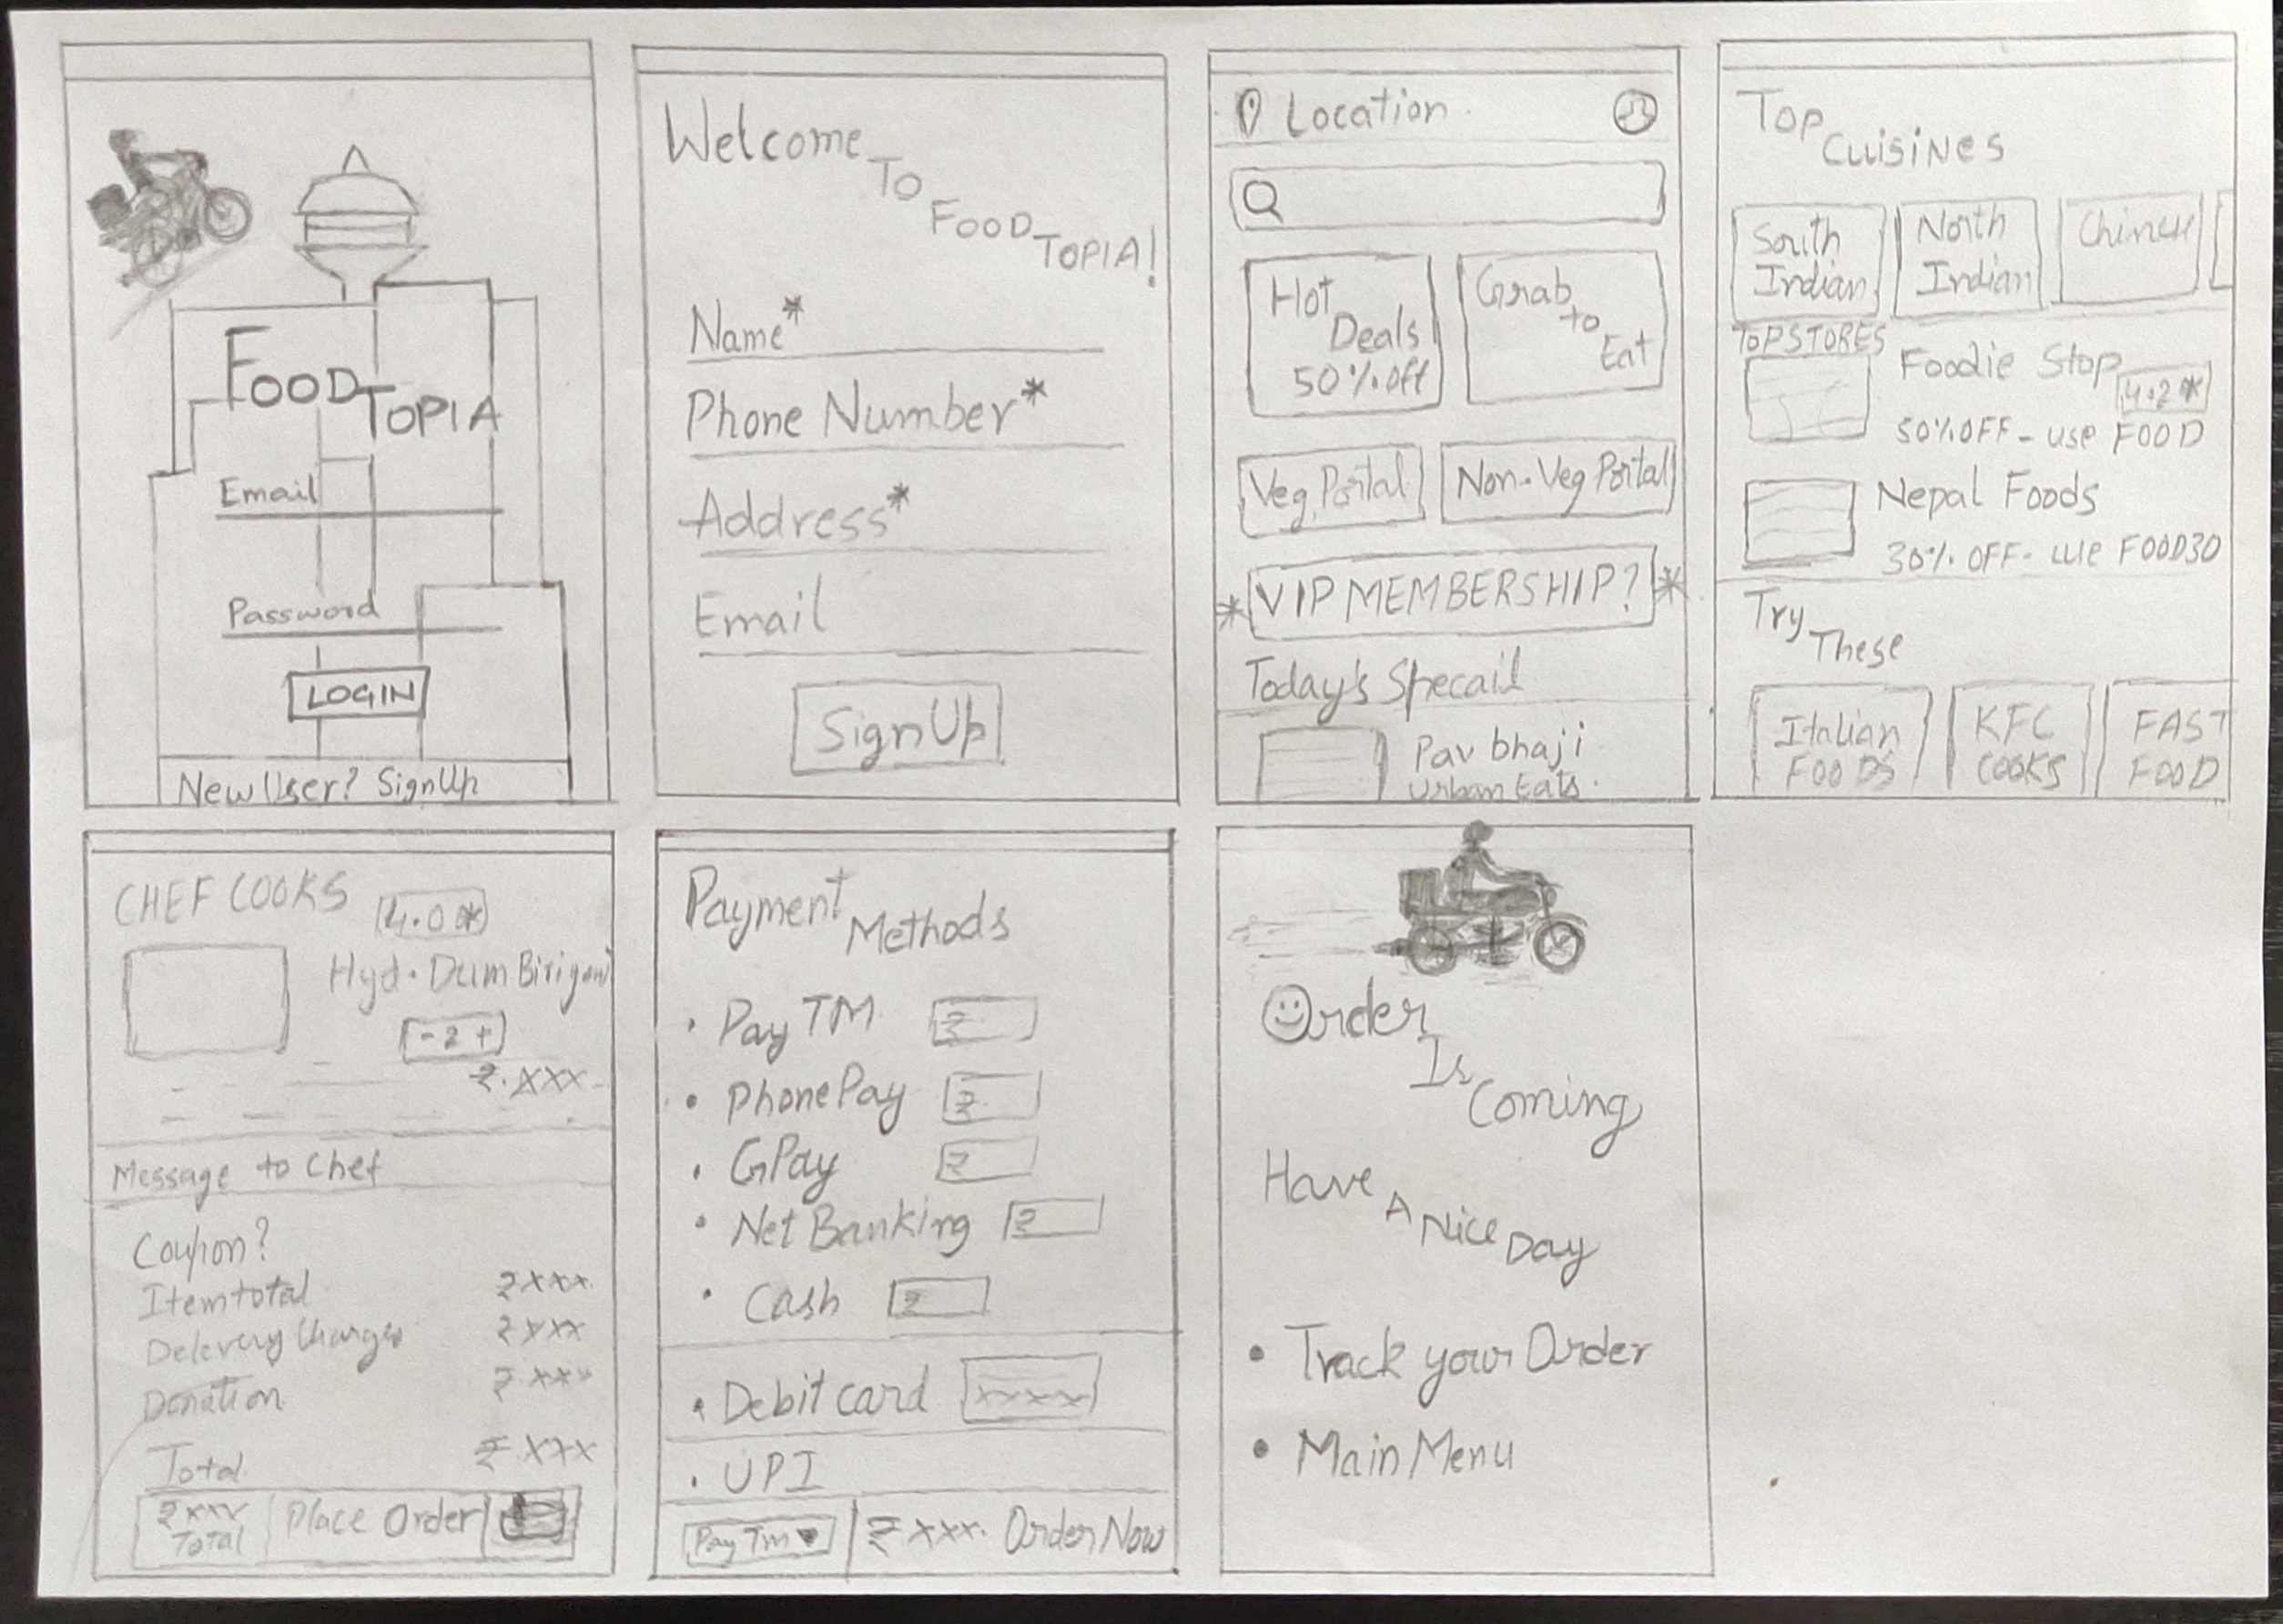 FOOD
TOPIA
Email
Password
LOGIN
New User? SignUp
Welcome
To
FOOD
TOPIA!
Name*
Phone Number*
Address*
Email
SignUp
Location
Hot
Deals
50% off
Grab
to
Eat
Veg Portal
Non-Veg Portal
* VIP MEMBERSHIP? *
Today's Specail
Pav bhaji
Urban Eats.
Top
Cuisines
South
Indian
North
Indian
Chinese
TOP STORES
Foodie Stop
4.2 *
50% OFF - use FOOD
Nepal Foods
30% OFF - use FOOD30
Try
These
Italian
FOODS
KFC
COOKS
FAST
FOOD
CHEF COOKS
4.0 *
Hyd. Dum Biriyani
- 2 +
₹.XXX
Message to Chef
Coupon?
Itemtotal ₹XXX
Delevery Charges ₹XXX
Donation ₹XXX
Total ₹XXX
₹XXX
Total
Place Order
Payment
Methods
• PayTM ₹
• PhonePay ₹
• GPay ₹
• Net Banking ₹
• Cash ₹
• Debit card XXXX
• UPI
PayTm ▾
₹XXX. Order Now
Order
Is
Coming
Have
A
Nice
Day
• Track your Order
• Main Menu